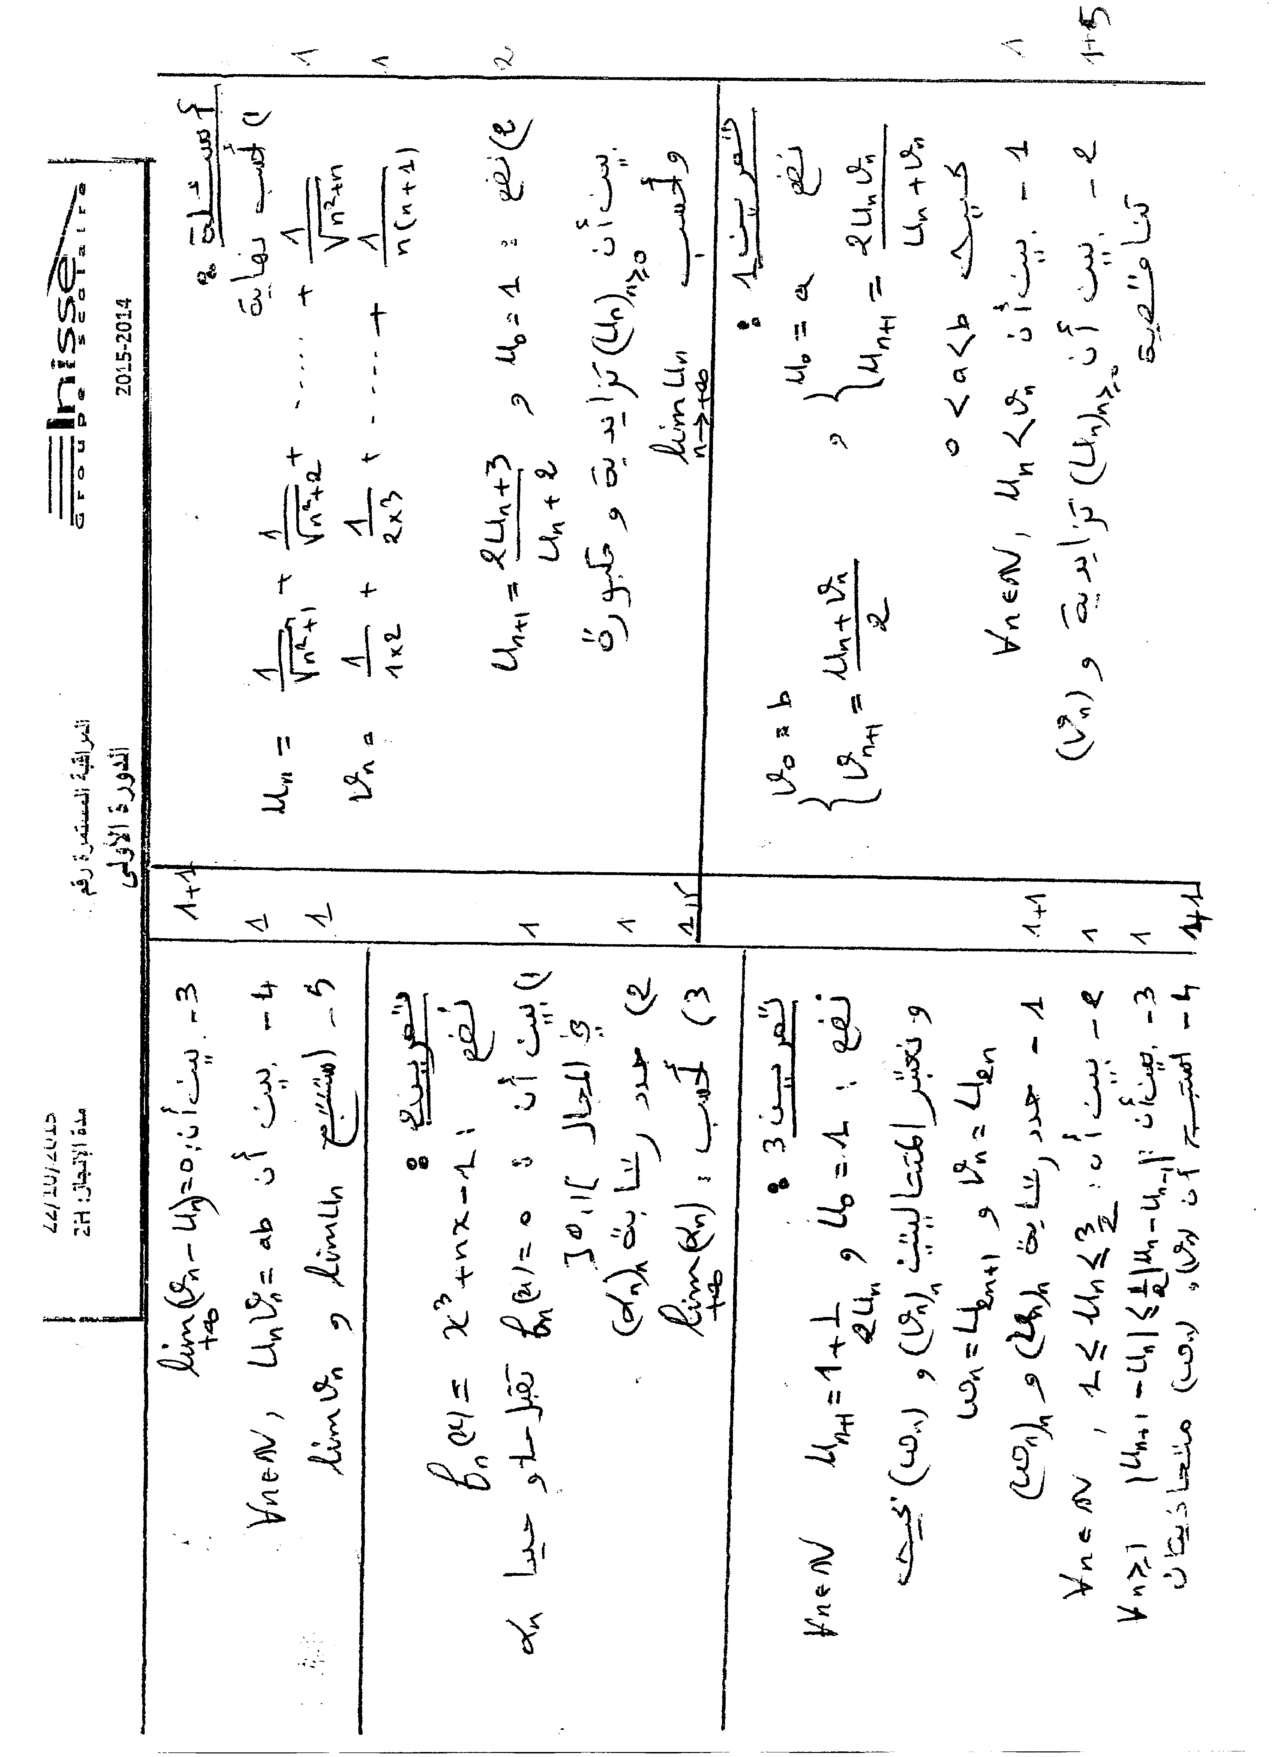 Inisse
Groupe Scolaire
2015-2014
المراقبة المستمرة رقم
الدورة الأولى
22/10/2015
مدة الإنجاز: 2H
أسئلة :
1) أحسب نهاية
Un = 1/√(n²+1) + 1/√(n²+2) + ..... + 1/√(n²+n) 1
Vn = 1/(1×2) + 1/(2×3) + ..... + 1/(n(n+1)) 1
2) نضع : U0 = 1 و Un+1 = (2Un+3)/(Un+2) 2
بين أن (Un)n≥0 تزايدية و مكبورة
و أحسب lim Un n→+∞
تمرين 1 :
نضع { U0 = a , Un+1 = 2UnVn/(Un+Vn) و { V0 = b , Vn+1 = (Un+Vn)/2
بحيث 0 < a < b
1 - بين أن ∀n∈ℕ, Un < Vn 1
2 - بين أن (Un)n≥0 تزايدية و (Vn) تناقصية 1+5
3 - بين أن: lim(Vn - Un) = 0 +∞ 1+1
4 - بين أن ∀n∈ℕ, UnVn = ab 1
5 - استنتج lim Un و lim Vn 1
تمرين 2 :
نضع : fn(x) = x³ + nx - 1
1) بين أن : fn(x) = 0 تقبل حلا وحيدا αn 1
في المجال ]0,1[
2) حدد رتابة (αn)n 1
3) أحسب : lim(αn) +∞
تمرين 3 :
نضع : U0 = 1 و Un+1 = 1 + 1/(2Un) ∀n∈ℕ
و نعتبر المتتاليتين (Vn)n و (Wn) بحيث
Wn = U2n+1 و Vn = U2n
1 - حدد رتابة (Vn)n و (Wn)n 1+1
2 - بين أن : ∀n∈ℕ , 1 ≤ Un ≤ 3/2 1
3 - بين أن : ∀n≥1 |Un+1 - Un| ≤ 1/2 |Un - Un-1| 1
4 - استنتج أن (Vn) و (Wn) متحاذيتان 1+1